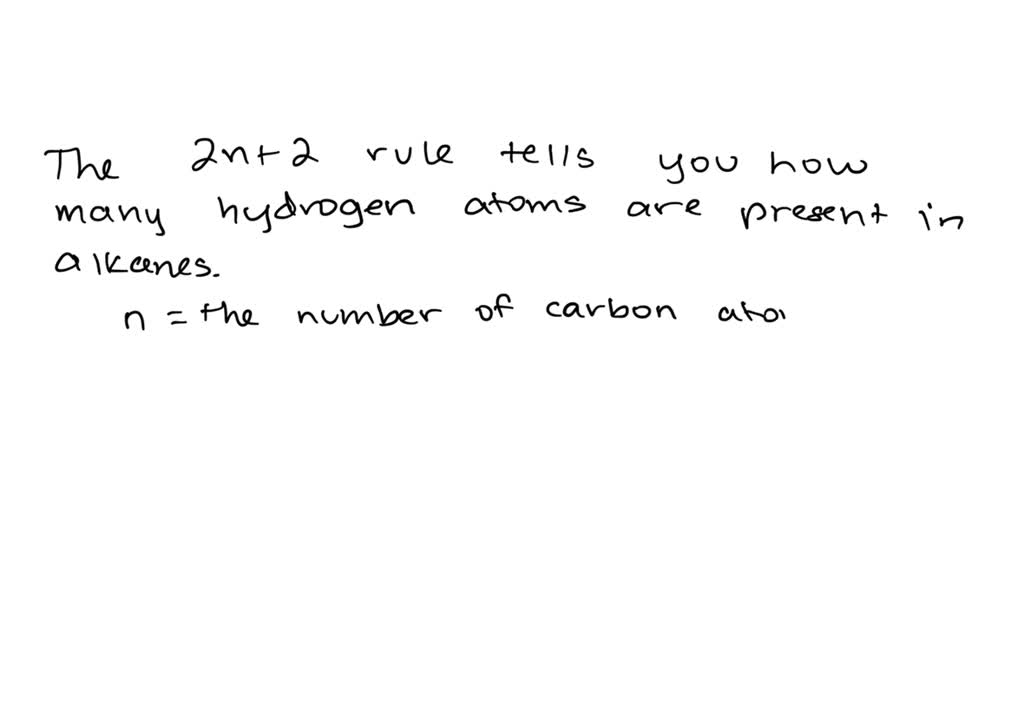 The 2n+2 rule tells you how
many hydrogen atoms are present in
alkanes.
n = the number of carbon